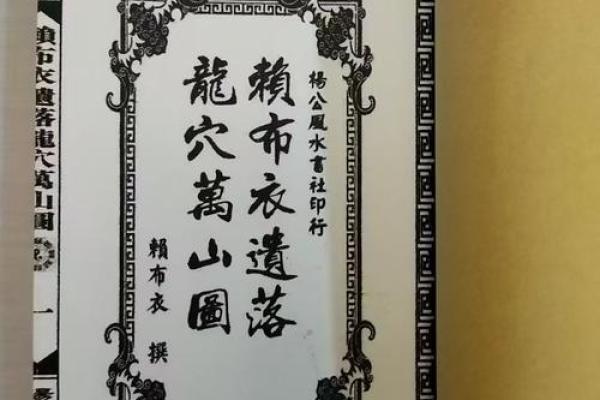 楊公風水書社印行
賴布衣遺落
龍穴萬山圖
賴布衣 撰
賴布衣遺落龍穴萬山圖
一